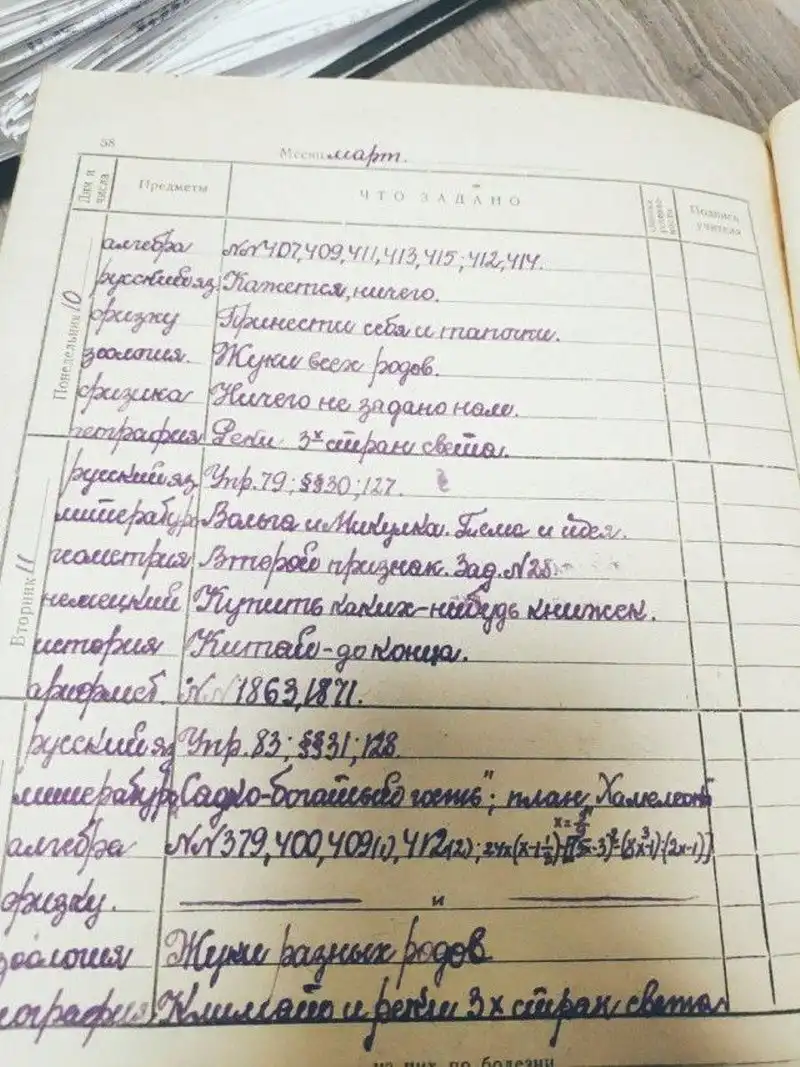 58
Месяц март.
Дни и числа Предметы ЧТО ЗАДАНО Подпись учителя
Понедельник 10
алгебра №№407,409,411,413,415;412,414.
русский яз. Кажется, ничего.
физку Принести себя и тапочки.
зоология. Жуки всех родов.
физика Ничего не задано нам.
география Реки 3х стран света.
Вторник 11
русский яз. Упр.79; §§30;127.
литература Вольга и Микулка. Тема и идея.
геометрия Второй признак. Зад.№25
немецкий Купить каких-нибудь книжек.
история Китай-до конца.
арифмет. №№1863,1871.
русский яз Упр.83; §§31;128.
литература „Садко-богатый гость"; план „Хамелеон"
алгебра №№379,400,409(1),412(2);
физку. и
зоология Жуки разных родов.
география Климат и реки 3х стран света
из них по болезни